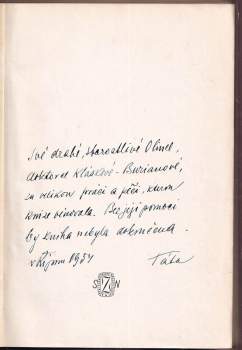 Své drahé, starostlivé Olince,
doktorce Kláskové-Burianové,
za velikou práci a péči, kterou
knize věnovala. Bez její pomoci
by kniha nebyla dokončena.
v říjnu 1954 Táta
S N